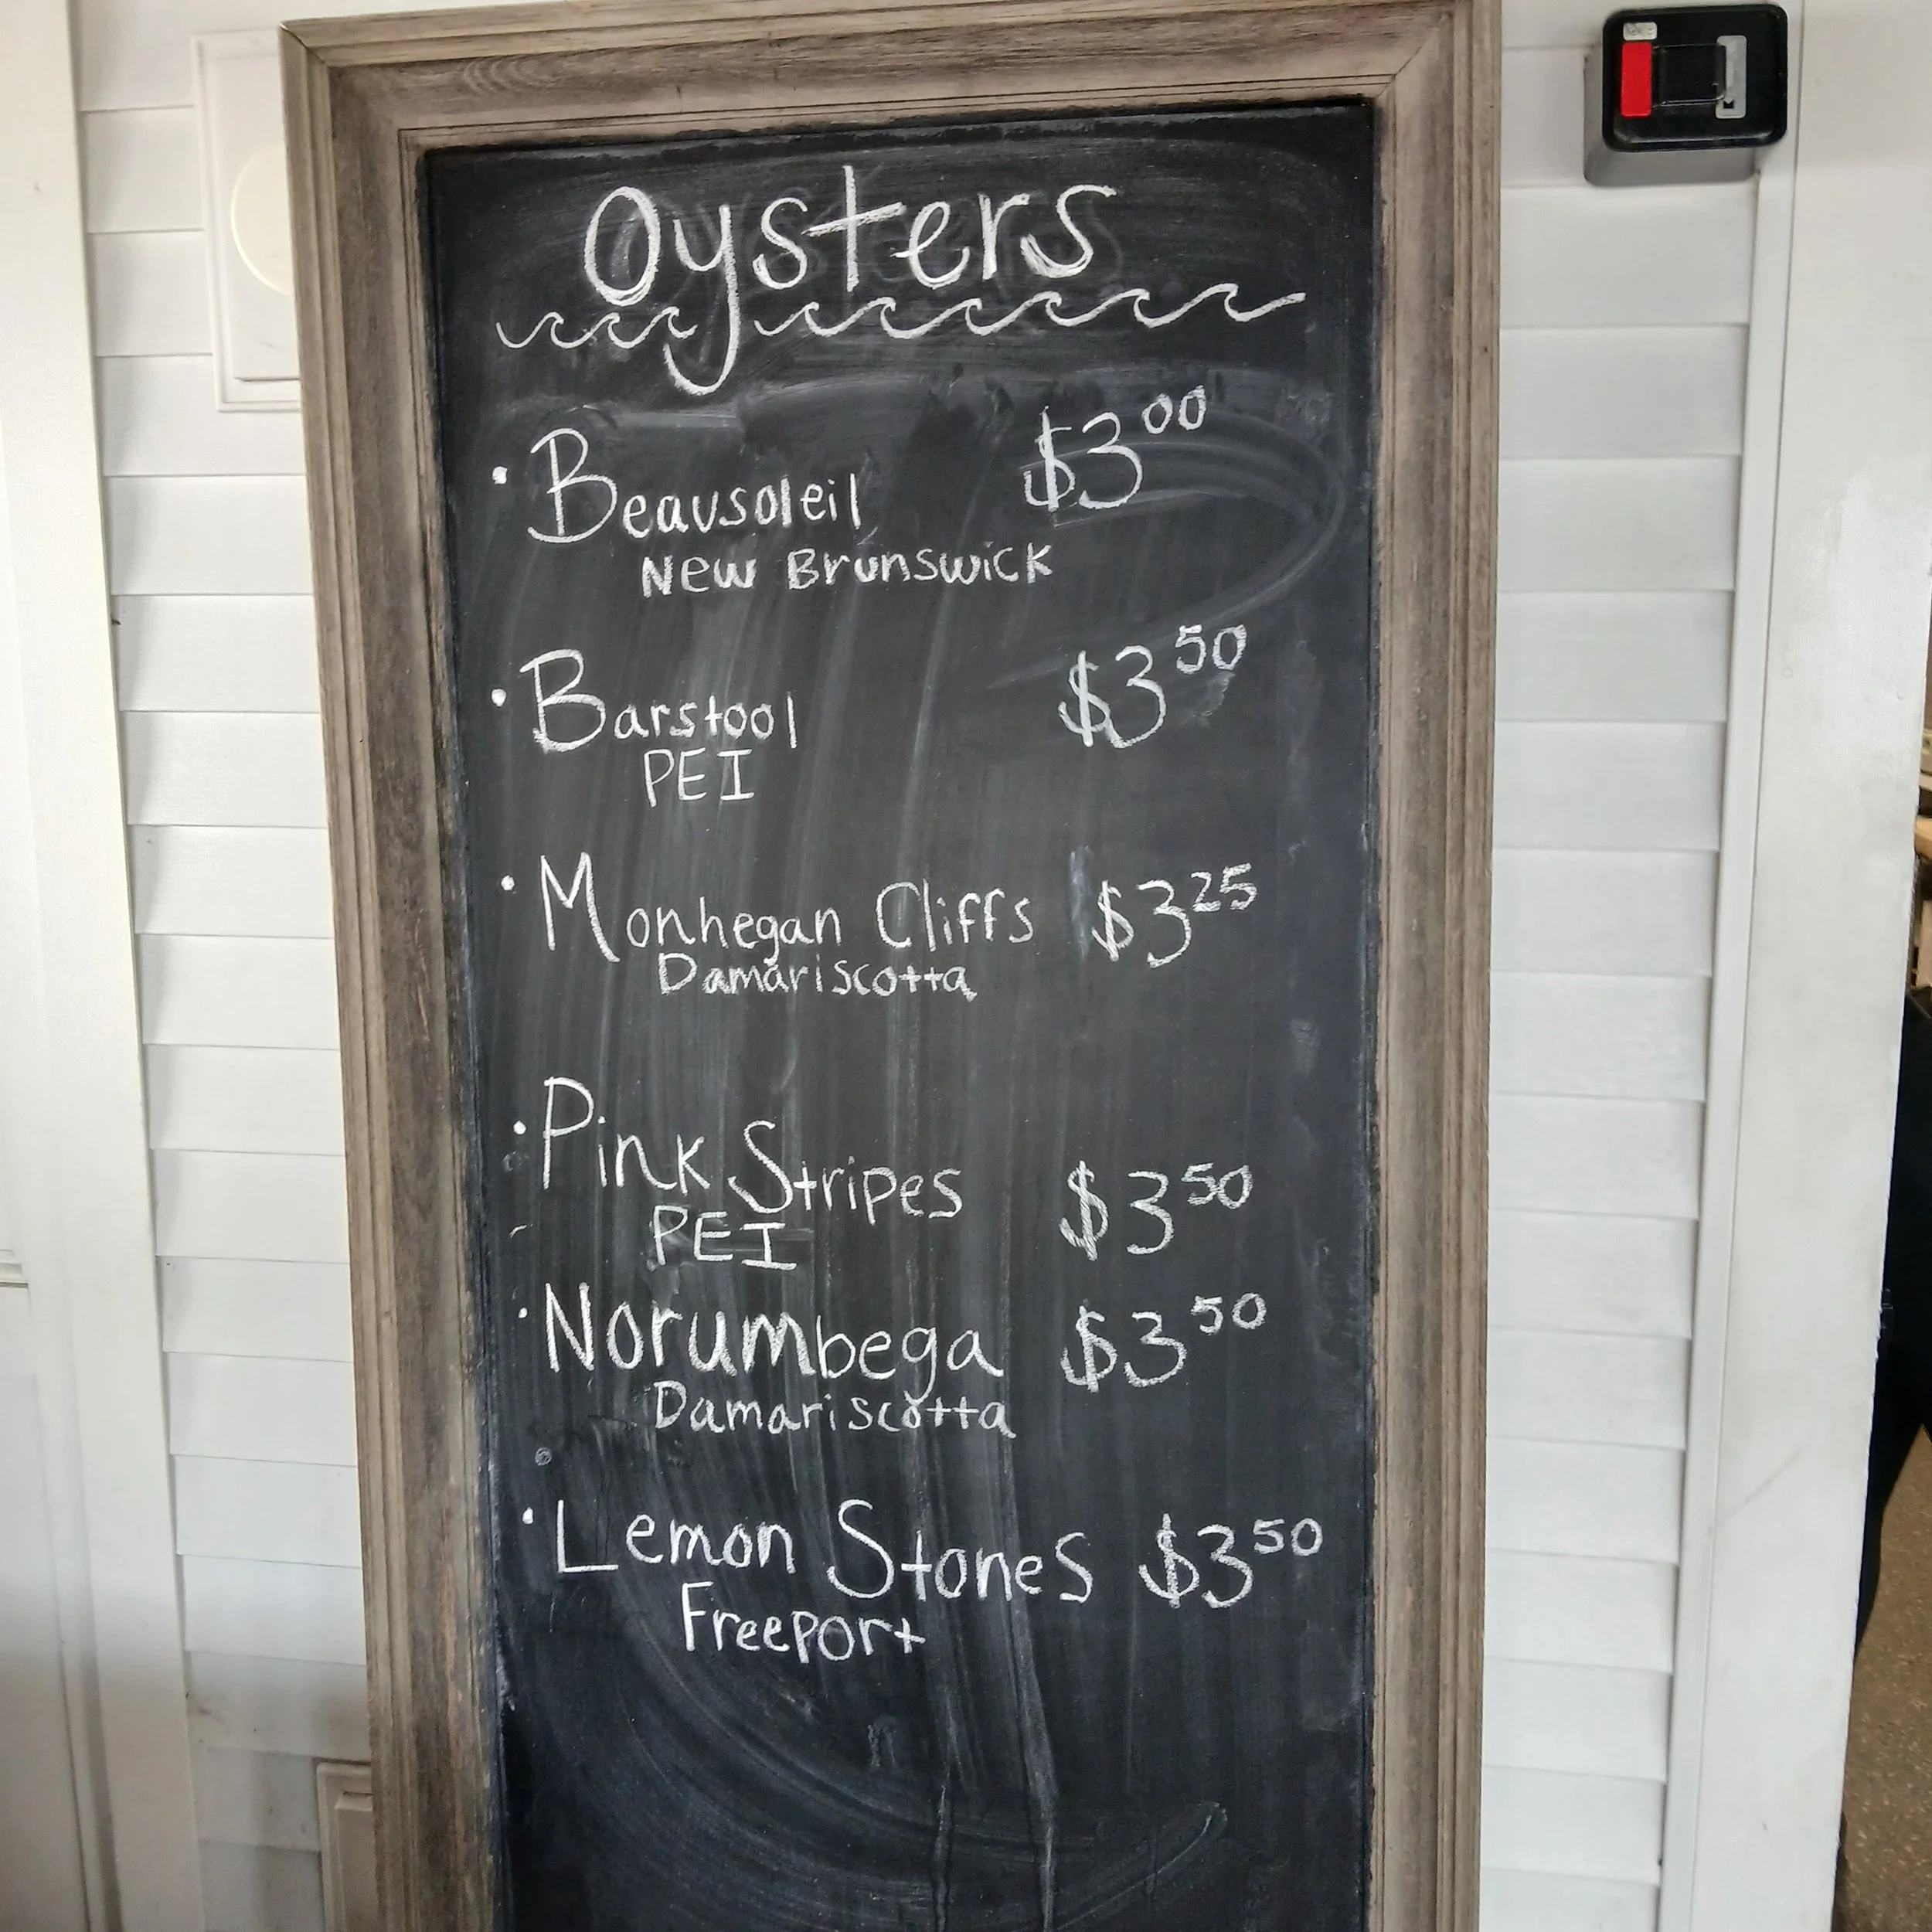 Oysters
• Beausoleil $3.00
New Brunswick
• Barstool $3.50
PEI
• Monhegan Cliffs $3.25
Damariscotta
• Pink Stripes $3.50
PEI
• Norumbega $3.50
Damariscotta
• Lemon Stones $3.50
Freeport